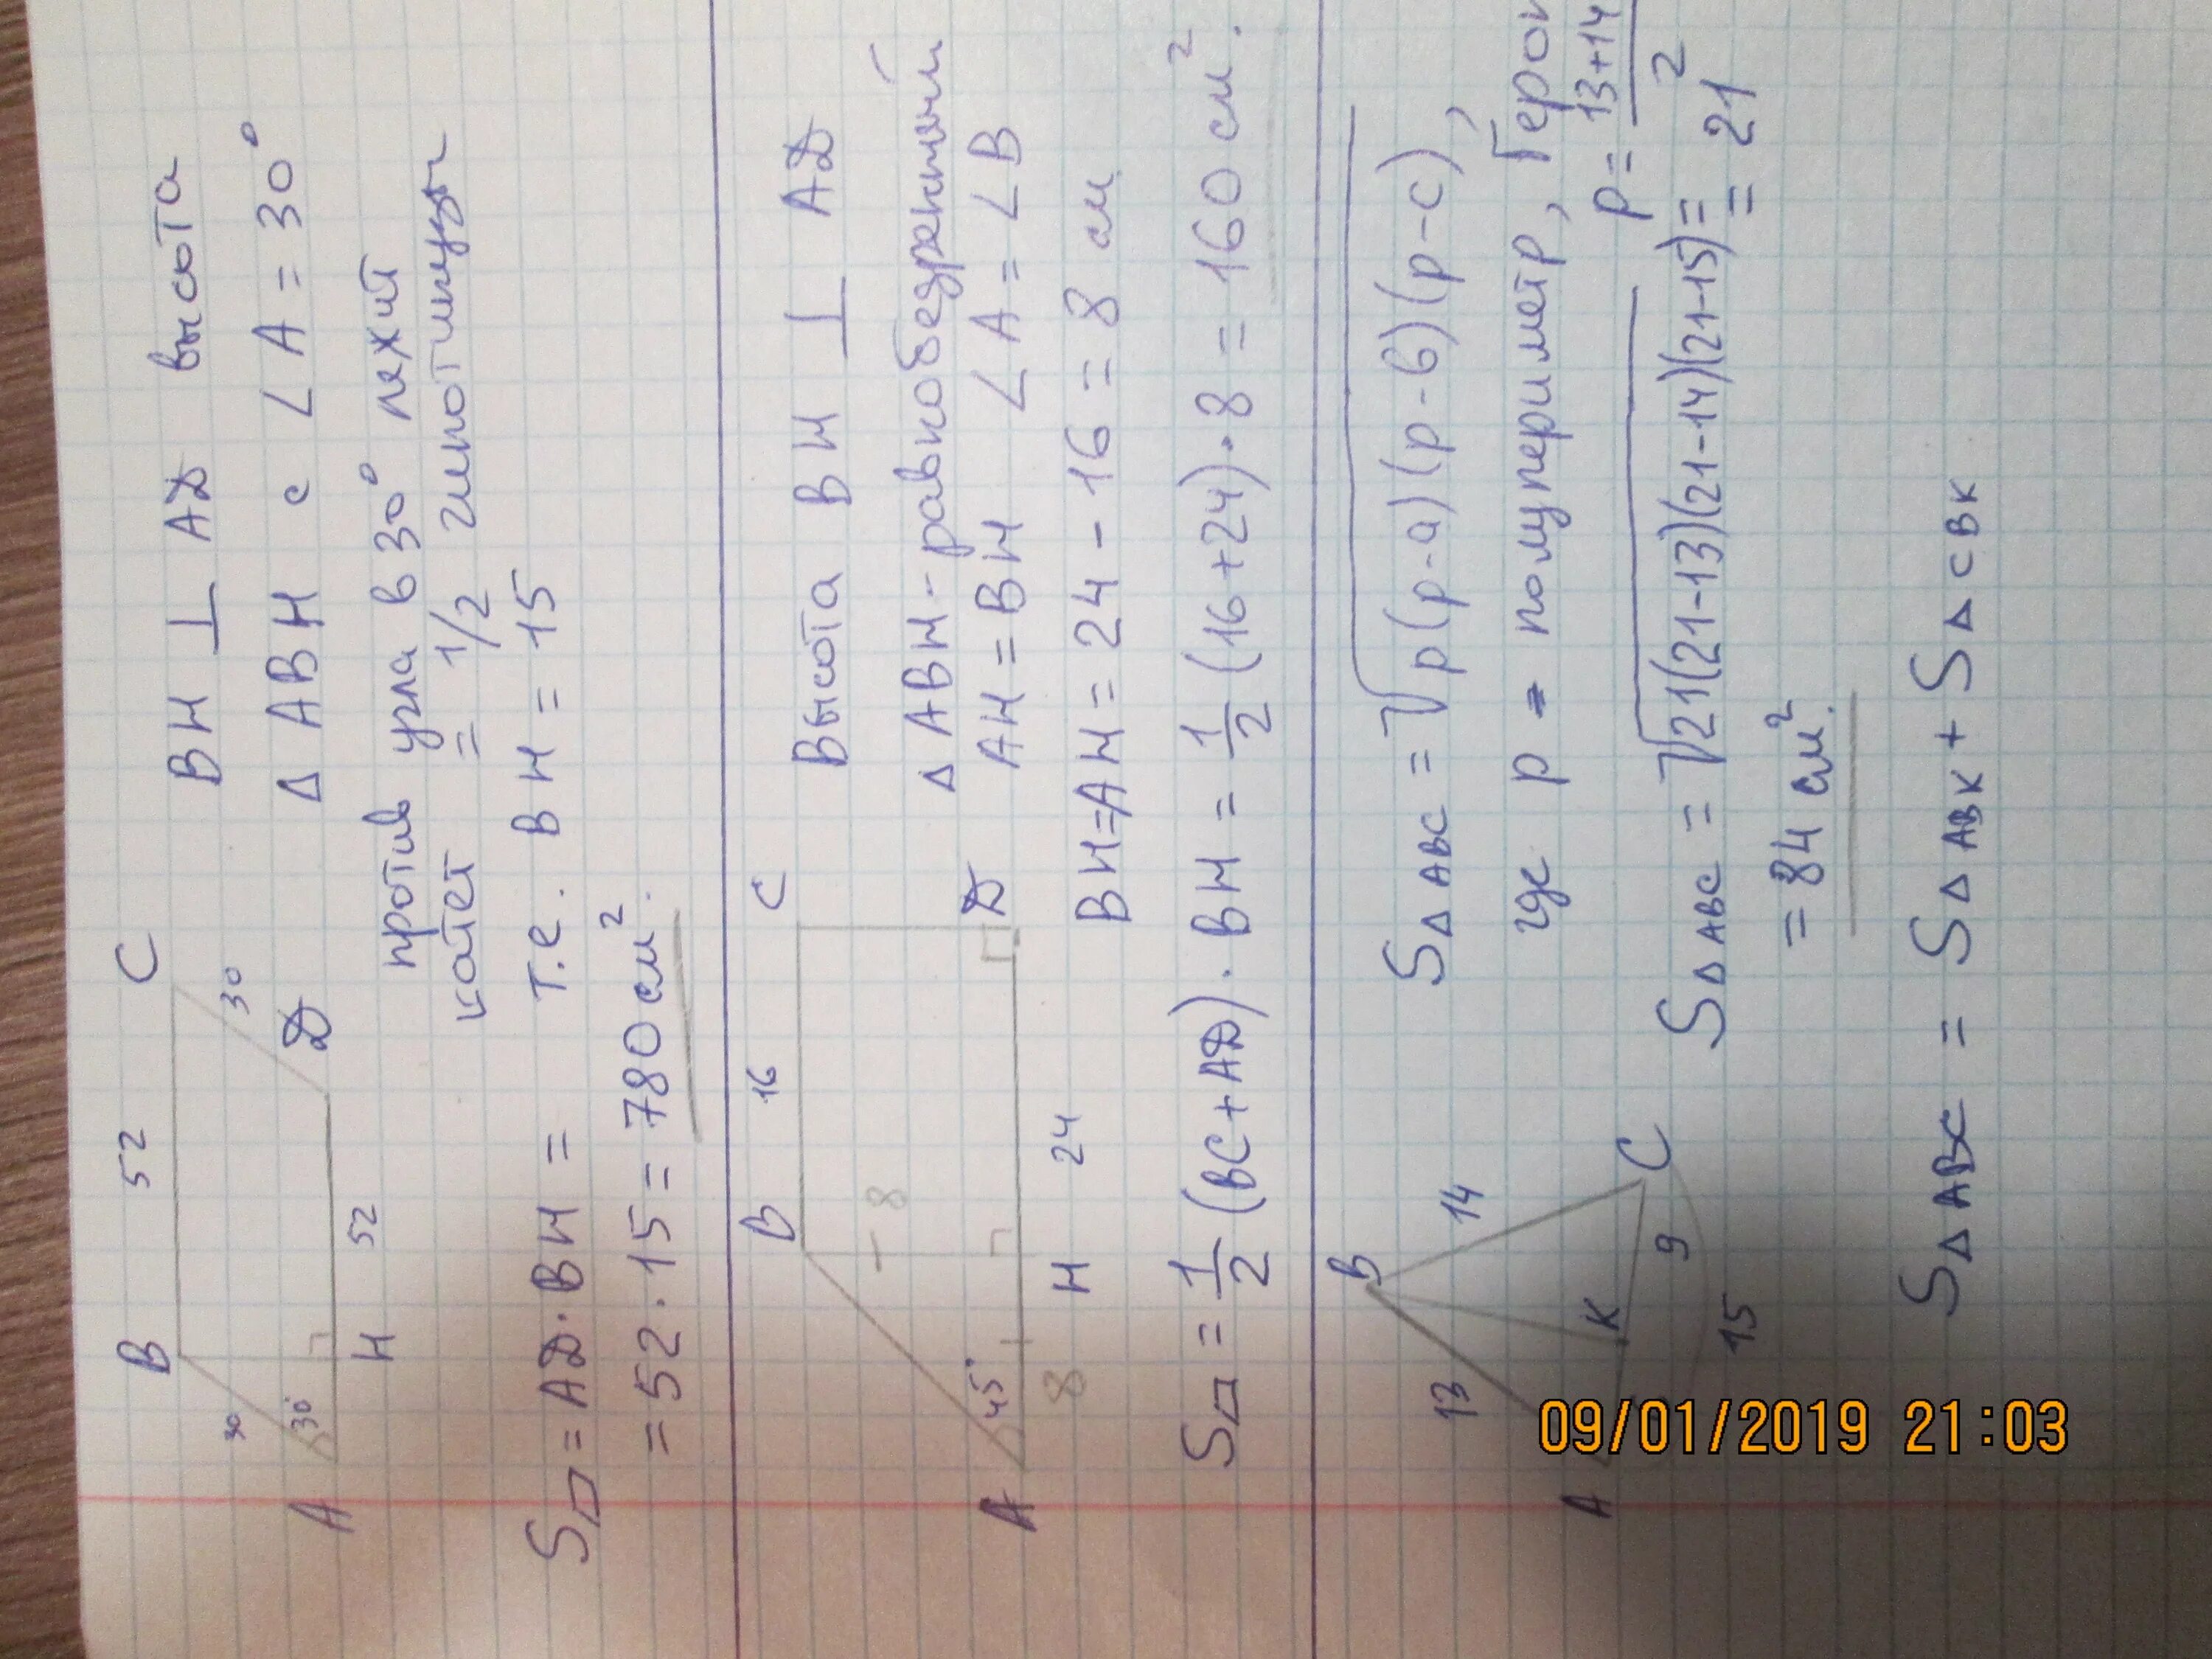 B 52 C
30 30
30°
A H 52 Д
BH ⊥ АД высота
Δ ABH с ∠A = 30°
против угла в 30° лежит
катет = 1/2 гипотинузы
т.е. BH = 15
S▱ = АД · BH =
= 52 · 15 = 780 см².
B 16 C
8
45°
A 8 H 24 Д
Высота BH ⊥ АД
Δ ABH - равнобедренный
AH = BH ∠A = ∠B
BH = AH = 24 - 16 = 8 см
S▱ = 1/2 (BC + АД) · BH = 1/2 (16 + 24) · 8 = 160 см².
B
13 14
A K 9 C
15
SΔABC = √p(p-a)(p-b)(p-c),
где p = полупериметр,
p = 13+14
2
= 21
SΔABC = √21(21-13)(21-14)(21-15) =
= 84 см².
SΔABC = SΔABK + SΔCBK
09/01/2019 21:03